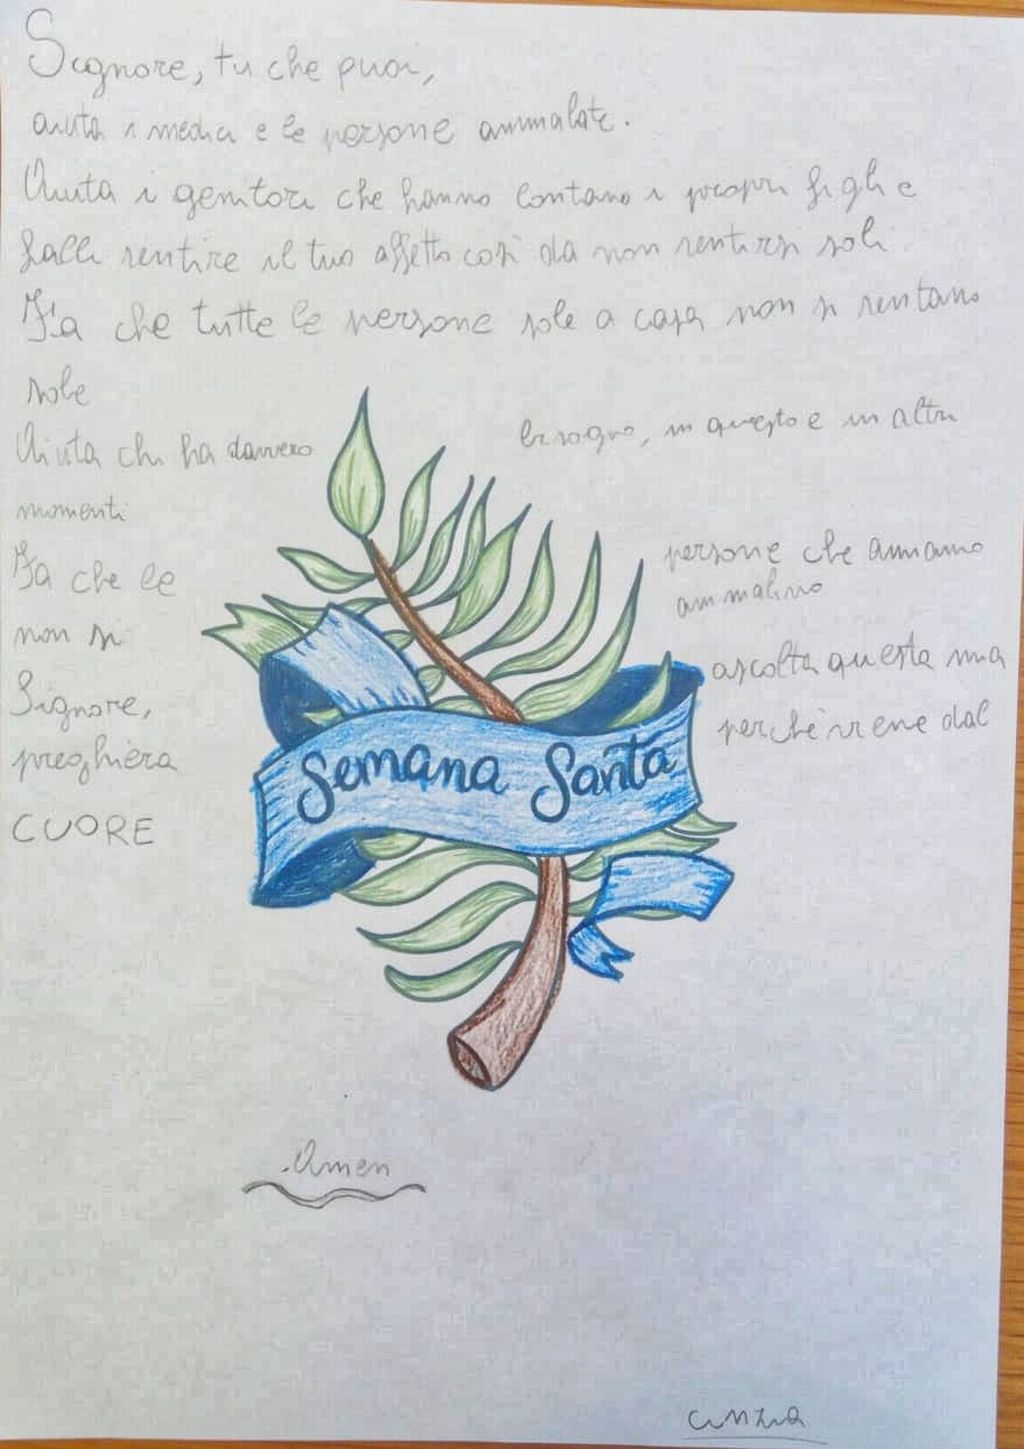 Signore, tu che puoi,
aiuta i medici e le persone ammalate.
Aiuta i genitori che hanno lontano i propri figli e
falli sentire il tuo affetto così da non sentirsi soli
Fa che tutte le persone sole a casa non si sentano
sole
Aiuta chi ha davvero bisogno, in questo e in altri
momenti
Fa che le persone che amiamo
non si ammalino
Signore, ascolta questa mia
preghiera perchè viene dal
CUORE
Semana Santa
Amen
Cinzia